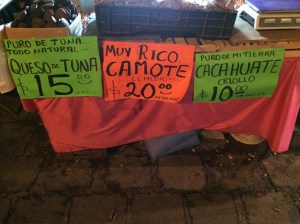 PURO DE TUNA
TODO NATURAL
QUESO DE TUNA
$15.00
MUY RICO
CAMOTE
EL MEDIO
$20.00
PURO DE MI TIERRA
CACAHUATE
CRIOLLO
$10.00